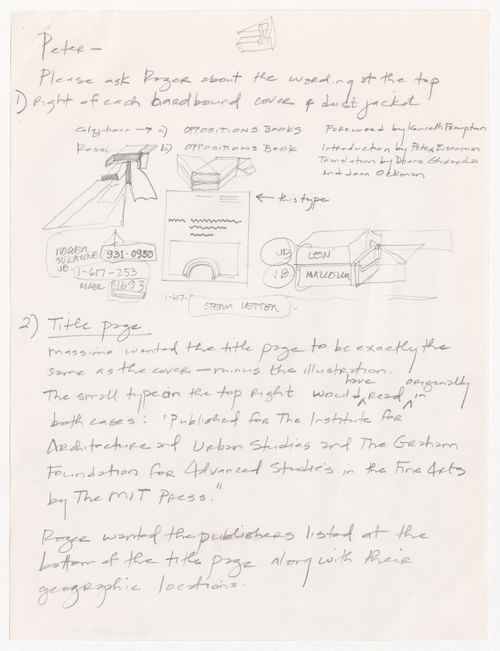 Peter —
Please ask Roger about the wording at the top
1) right of each hardbound cover & dust jacket
Colquhoun → a) OPPOSITIONS BOOKS Foreword by Kenneth Frampton
Rossi b) OPPOSITIONS BOOK Introduction by Peter Eisenman
Translation by Diane Ghirardo
and Joan Ockman
← this type
ROGER
SUZANNE 931-0930
JB LEW
JB. 1-617-253
JB MALCOLM
ROGER 1693
1-617-
STERN LETTER
2) Title page
Massimo wanted the title page to be exactly the
same as the cover — minus the illustration.
The small type on the top right would have read originally in
both cases: "Published for The Institute for
Architecture and Urban Studies and The Graham
Foundation for Advanced Studies in the Fine Arts
by The MIT Press."
Roger wanted the publishers listed at the
bottom of the title page along with their
geographic locations.